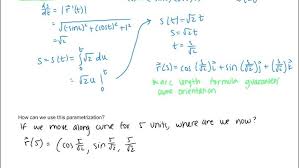 ds/dt = |r⃗'(t)|
= √((-sin t)² + (cos t)² + 1²)
= √2
s = s(t) = ∫₀ᵗ √2 du
= √2 u |₀ᵗ
s = s(t) = √2 t
s = √2 t
t = s/√2
r⃗(s) = cos(s/√2) i + sin(s/√2) j + s/√2
* arc length formula guarantees same orientation
How can we use this parametrization?
If we move along curve for 5 units, where are we now?
r⃗(5) = (cos 5/√2, sin 5/√2, 5/√2